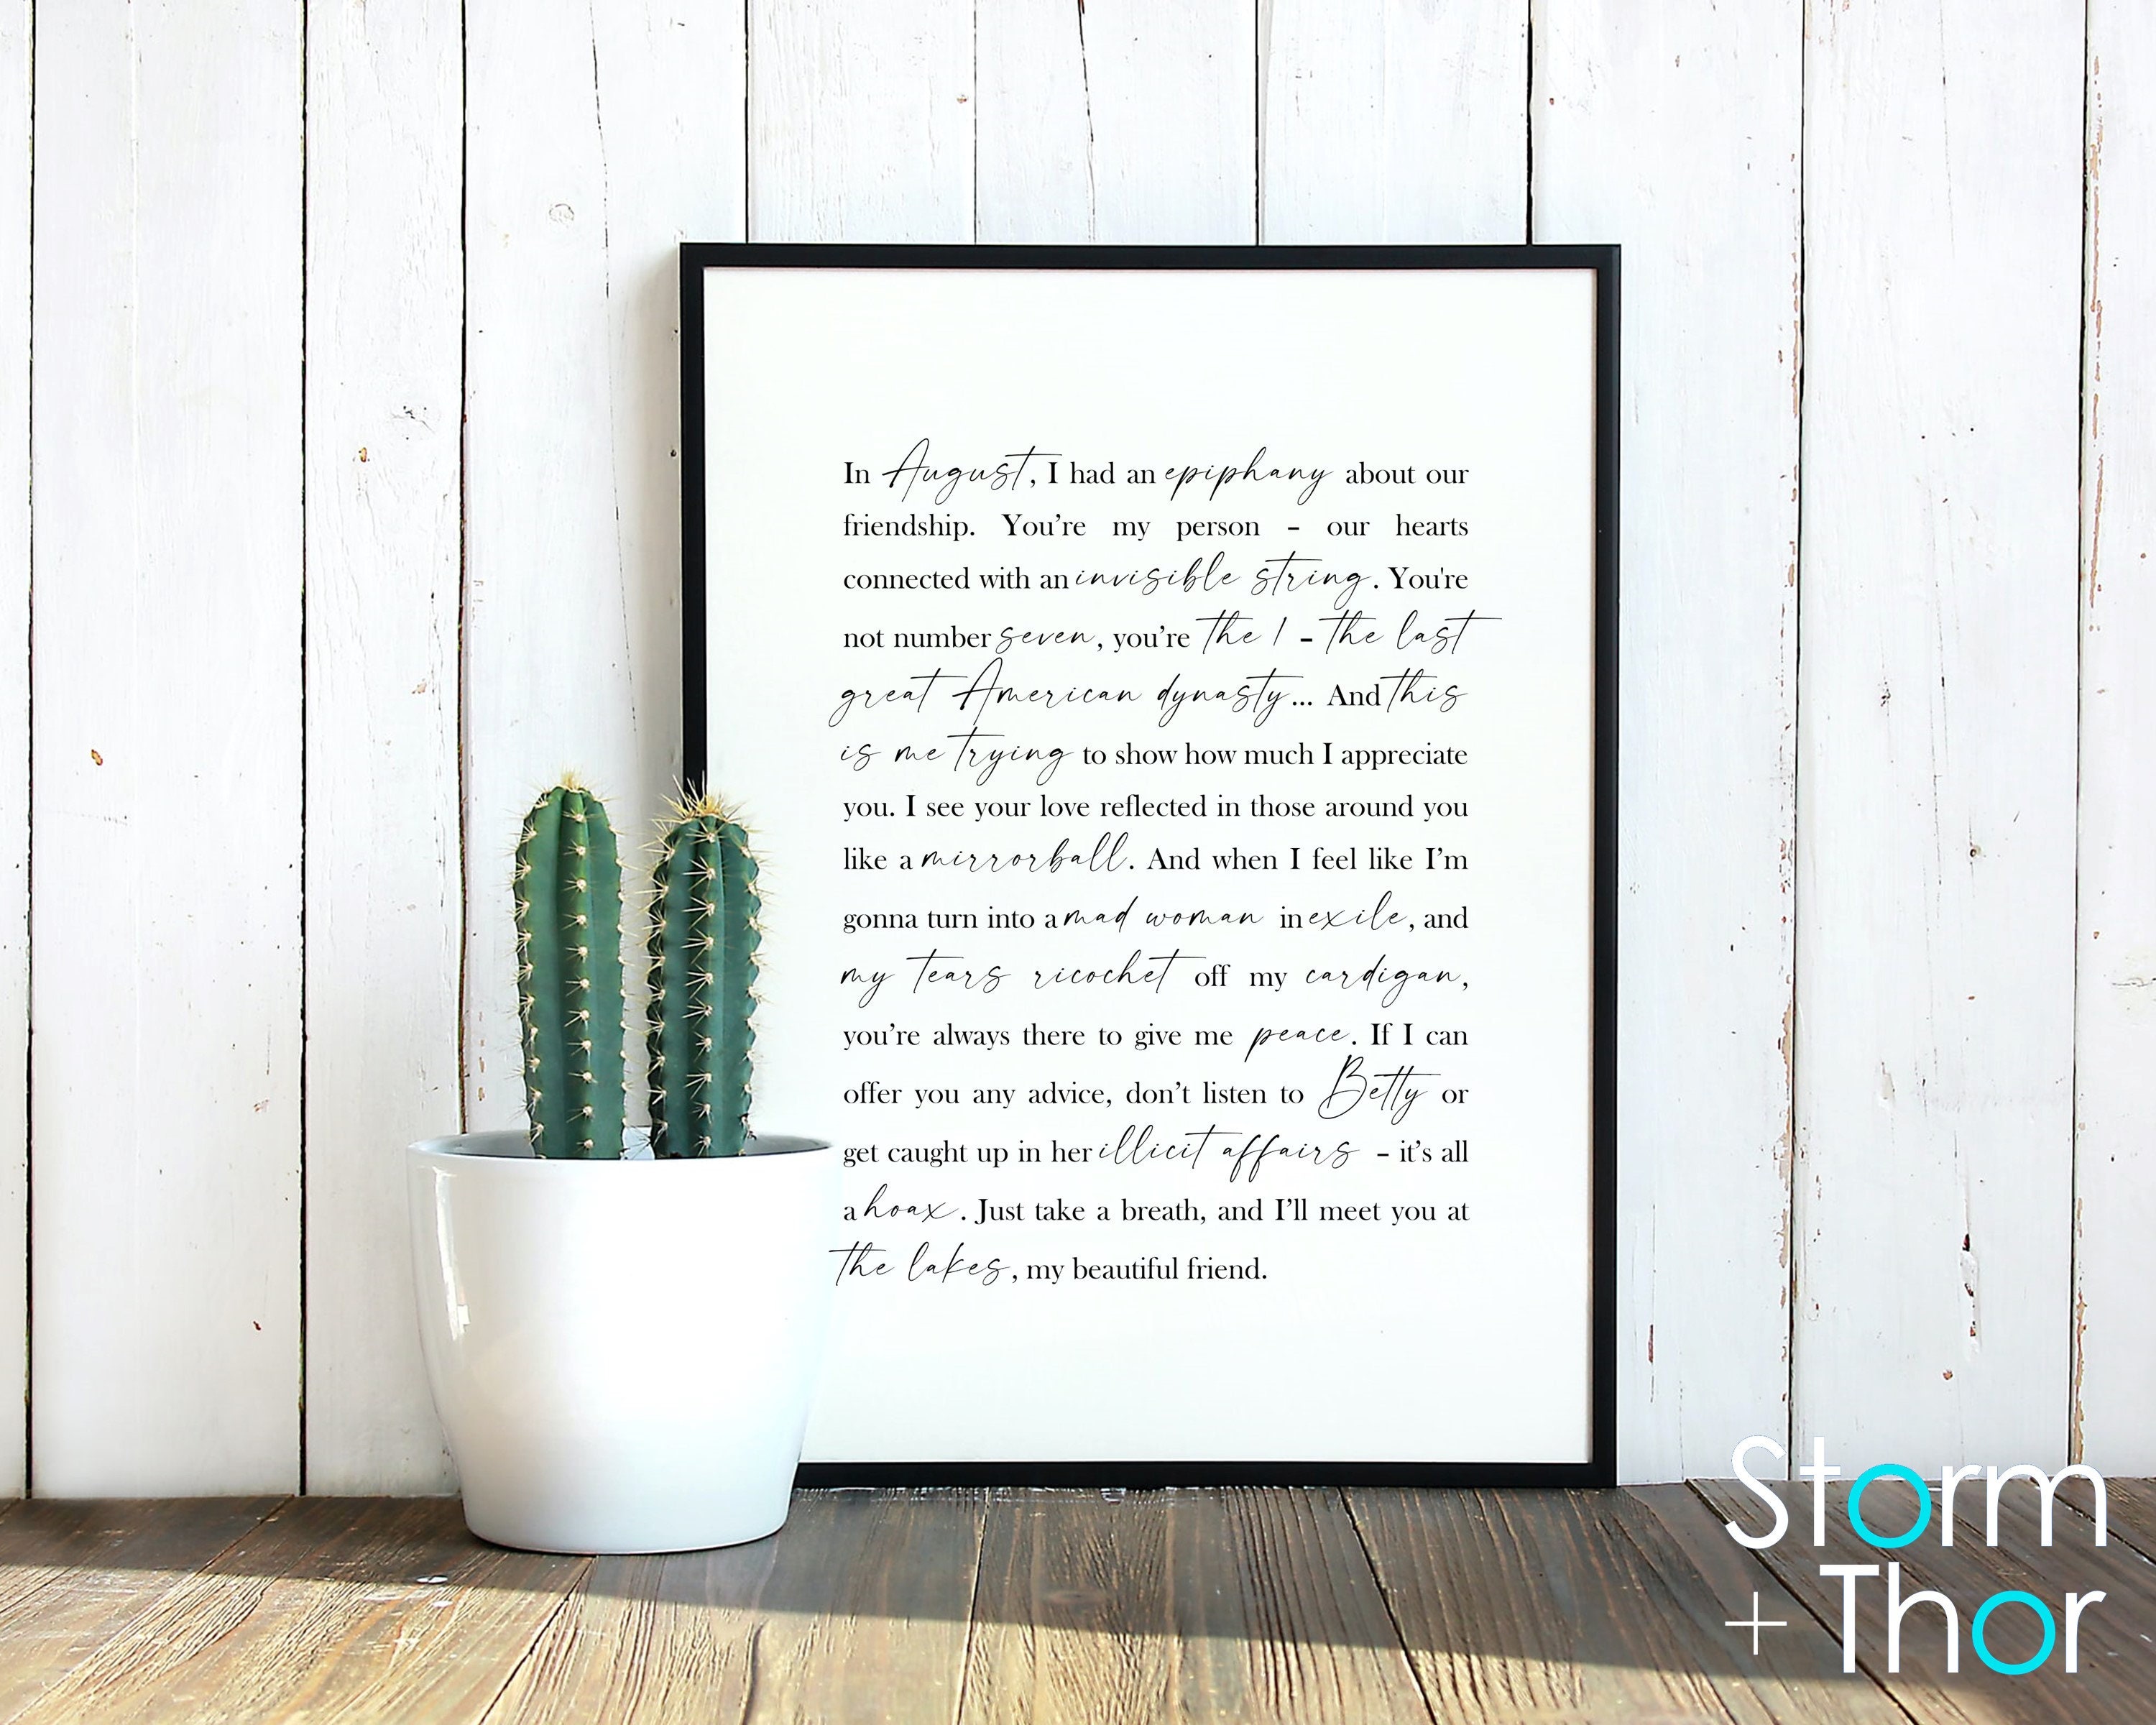 In August, I had an epiphany about our
friendship. You’re my person – our hearts
connected with an invisible string. You're
not number seven, you’re the 1 – the last
great American dynasty... And this
is me trying to show how much I appreciate
you. I see your love reflected in those around you
like a mirrorball. And when I feel like I’m
gonna turn into a mad woman in exile, and
my tears ricochet off my cardigan,
you’re always there to give me peace. If I can
offer you any advice, don’t listen to Betty or
get caught up in her illicit affairs – it’s all
a hoax. Just take a breath, and I’ll meet you at
the lakes, my beautiful friend.
Storm
+ Thor